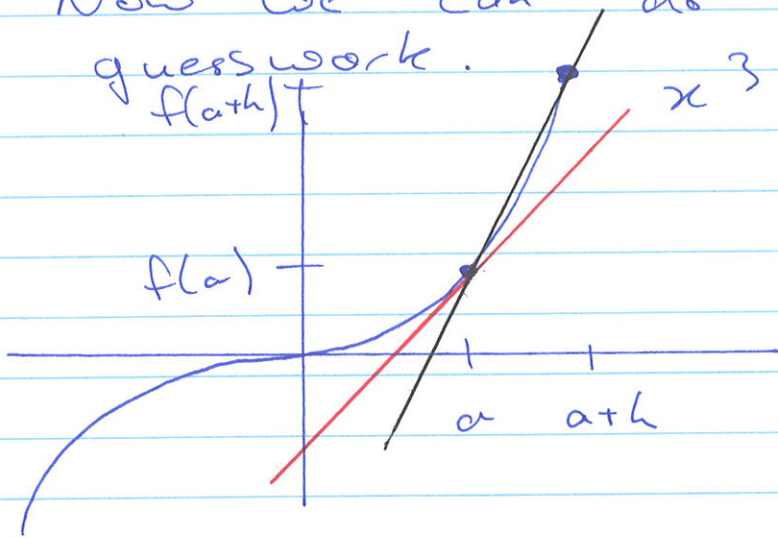 Now we can do
guesswork.
f(a+h)
x³
f(a)
a a+h